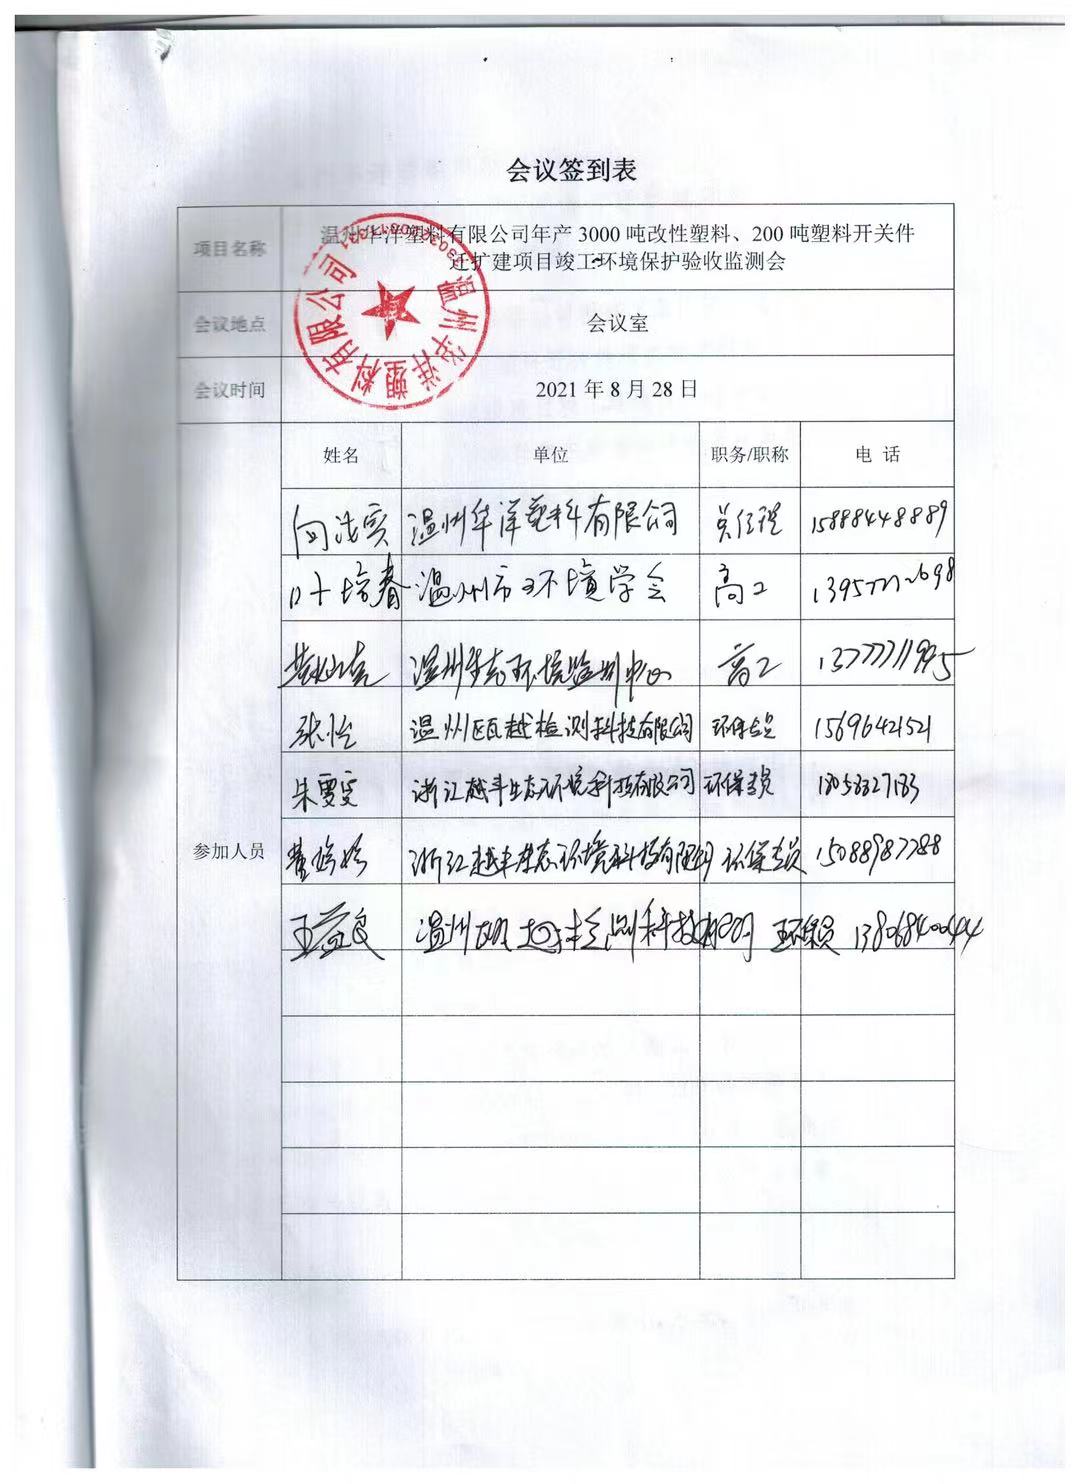 会议签到表
项目名称
温州华洋塑料有限公司年产 3000 吨改性塑料、200 吨塑料开关件
迁扩建项目竣工环境保护验收监测会
温州华洋塑料有限公司
会议地点 会议室
会议时间 2021 年 8 月 28 日
参加人员
姓名 单位 职务/职称 电 话
温州华洋塑料有限公司 总经理 15888448889
叶培春 温州市环境学会 高工
温州生态环境监测中心 高工
张怡 温州瓯越检测科技有限公司 环保专员 15696421521
朱雯雯 浙江越丰生态环境科技有限公司 环保专员 18058327183
董婷婷 浙江越丰生态环境科技有限公司 环保专员 15088987288
王益良 温州瓯越检测科技有限公司